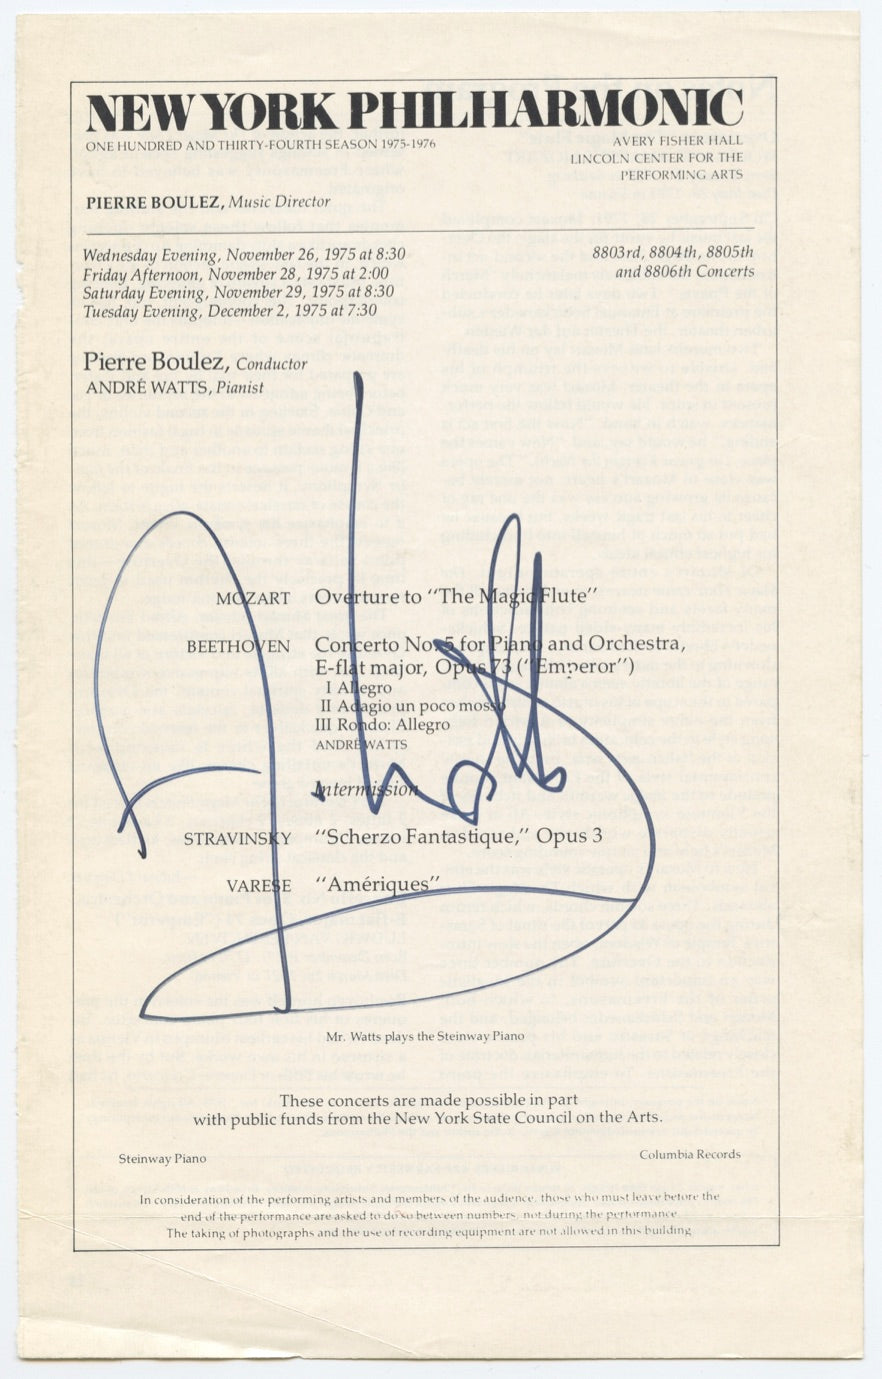 NEW YORK PHILHARMONIC
ONE HUNDRED AND THIRTY-FOURTH SEASON 1975-1976
AVERY FISHER HALL
LINCOLN CENTER FOR THE
PERFORMING ARTS
PIERRE BOULEZ, Music Director
Wednesday Evening, November 26, 1975 at 8:30
Friday Afternoon, November 28, 1975 at 2:00
Saturday Evening, November 29, 1975 at 8:30
Tuesday Evening, December 2, 1975 at 7:30
8803rd, 8804th, 8805th
and 8806th Concerts
Pierre Boulez, Conductor
ANDRÉ WATTS, Pianist
MOZART Overture to “The Magic Flute”
BEETHOVEN Concerto No. 5 for Piano and Orchestra,
E-flat major, Opus 73 (“Emperor”)
I Allegro
II Adagio un poco mosso
III Rondo: Allegro
ANDRÉ WATTS
Intermission
STRAVINSKY “Scherzo Fantastique,” Opus 3
VARESE “Amériques”
Mr. Watts plays the Steinway Piano
These concerts are made possible in part
with public funds from the New York State Council on the Arts.
Steinway Piano
Columbia Records
In consideration of the performing artists and members of the audience, those who must leave before the
end of the performance are asked to do so between numbers, not during the performance.
The taking of photographs and the use of recording equipment are not allowed in this building.